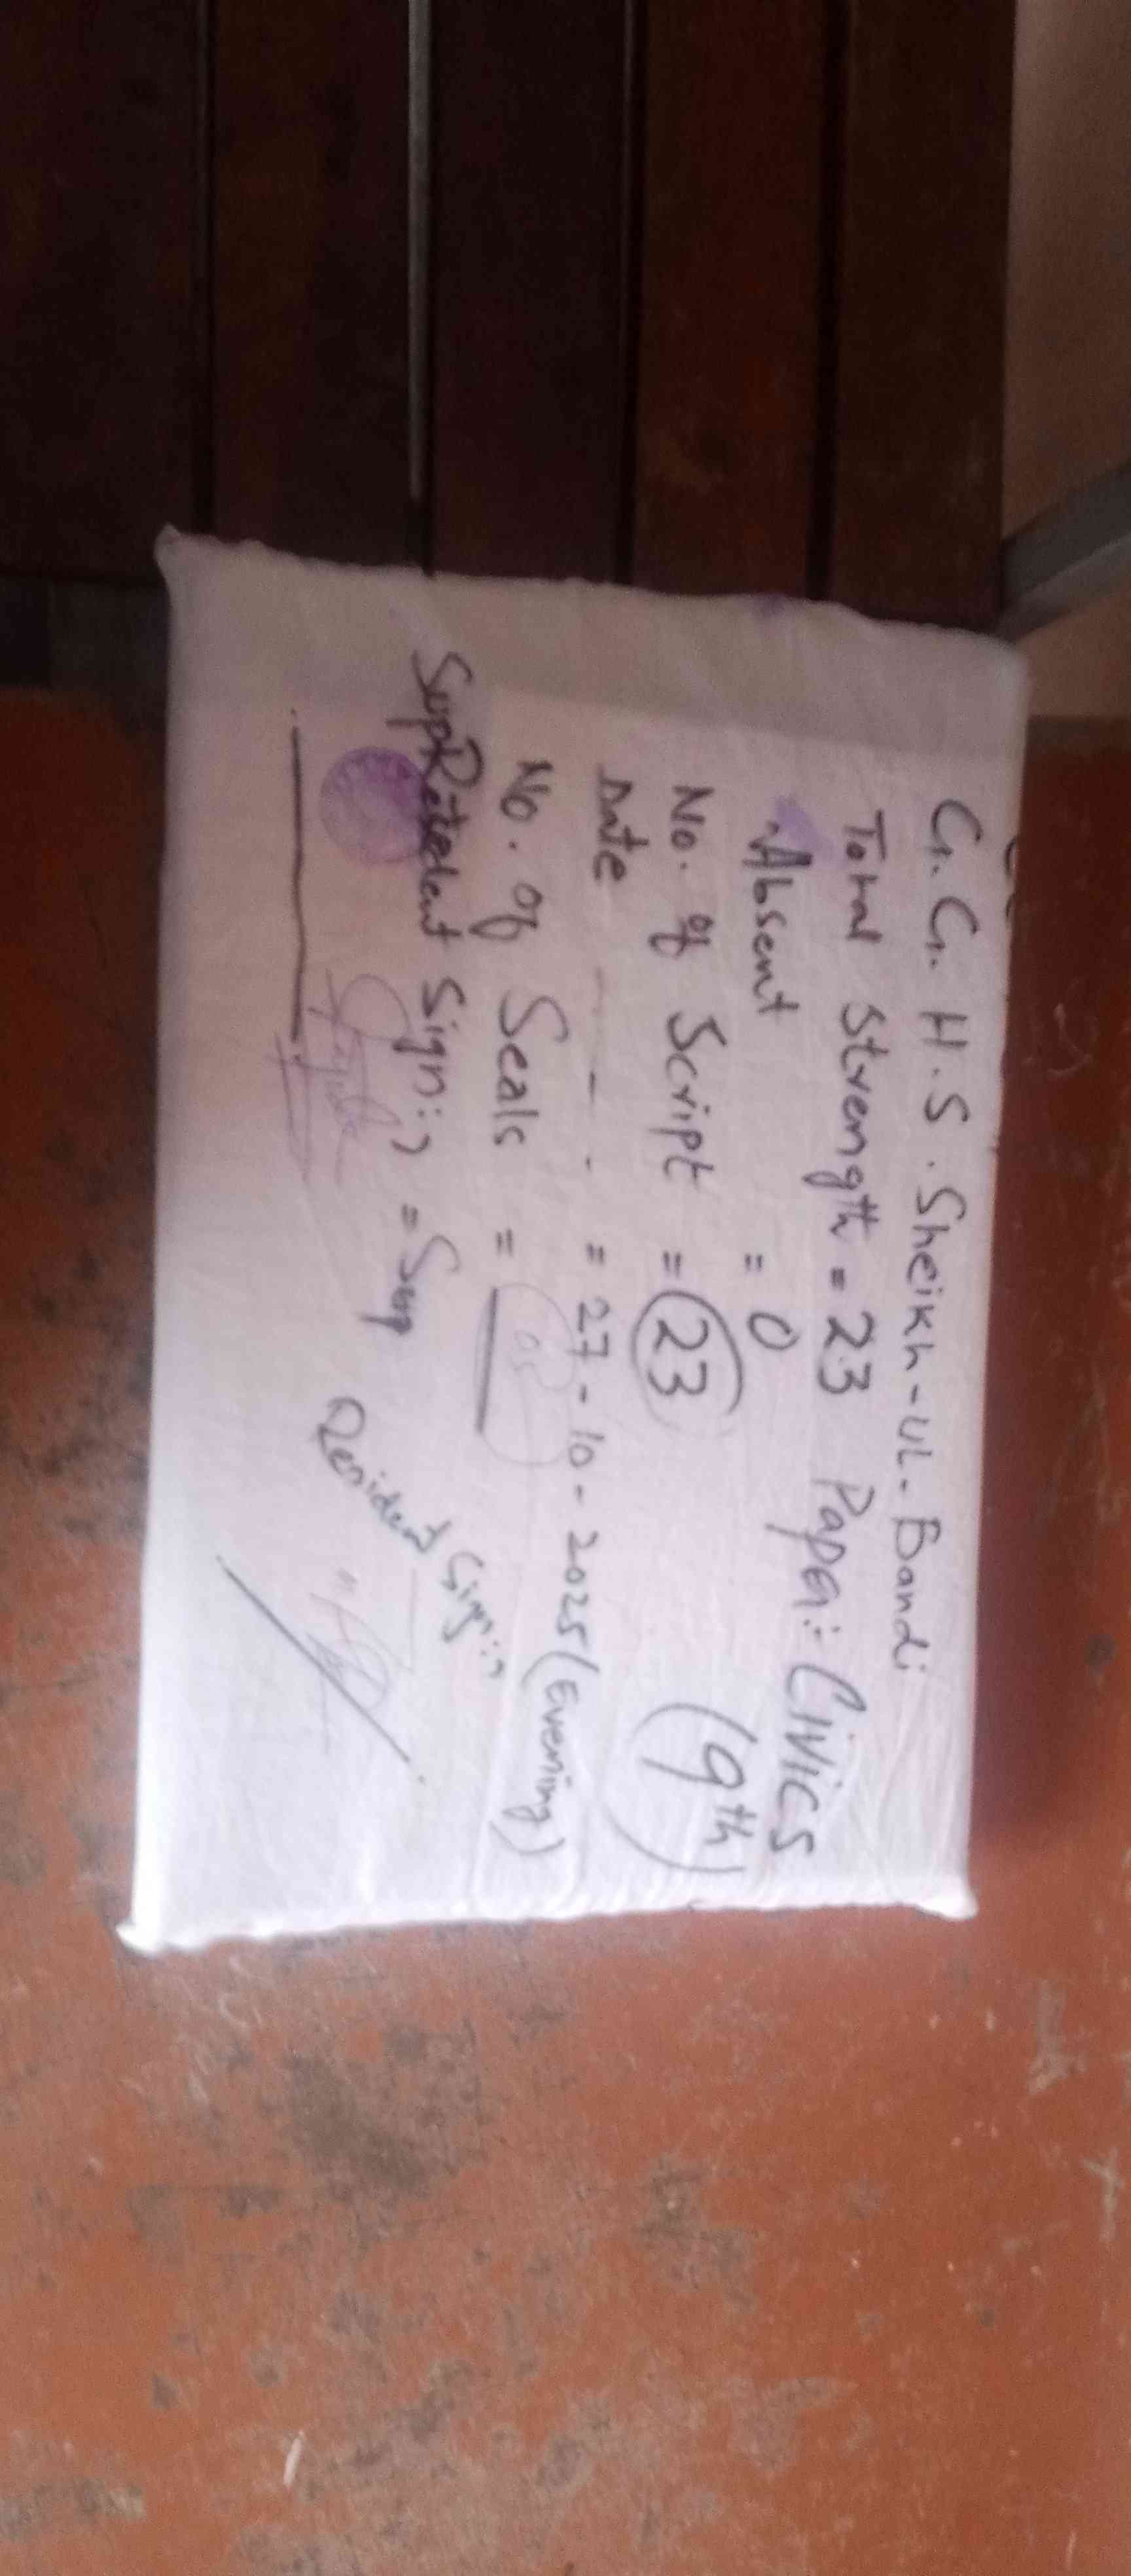 G. G. H. S. Sheikh-ul-Bandi
Total Strength = 23 Paper:- Civics
Absent = 0 (9th)
No. of Script = 23
Date = 27-10-2025 (Evening)
No. of Seals = 05
Sign:) = Sup
Resident Sign:)